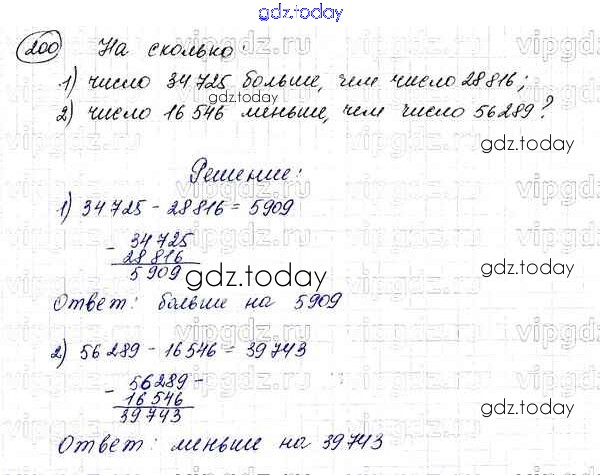 gdz.today
200 На сколько:
1) число 34 725 больше, чем число 28 816;
gdz.today
2) число 16 546 меньше, чем число 56 289?
gdz.today
Решение:
1) 34 725 - 28 816 = 5909
- 34 725
28 816
5 909
gdz.today
gdz.today
Ответ: больше на 5909
2) 56 289 - 16 546 = 39 743
- 56 289 -
16 546
39 743
gdz.today
Ответ: меньше на 39 743